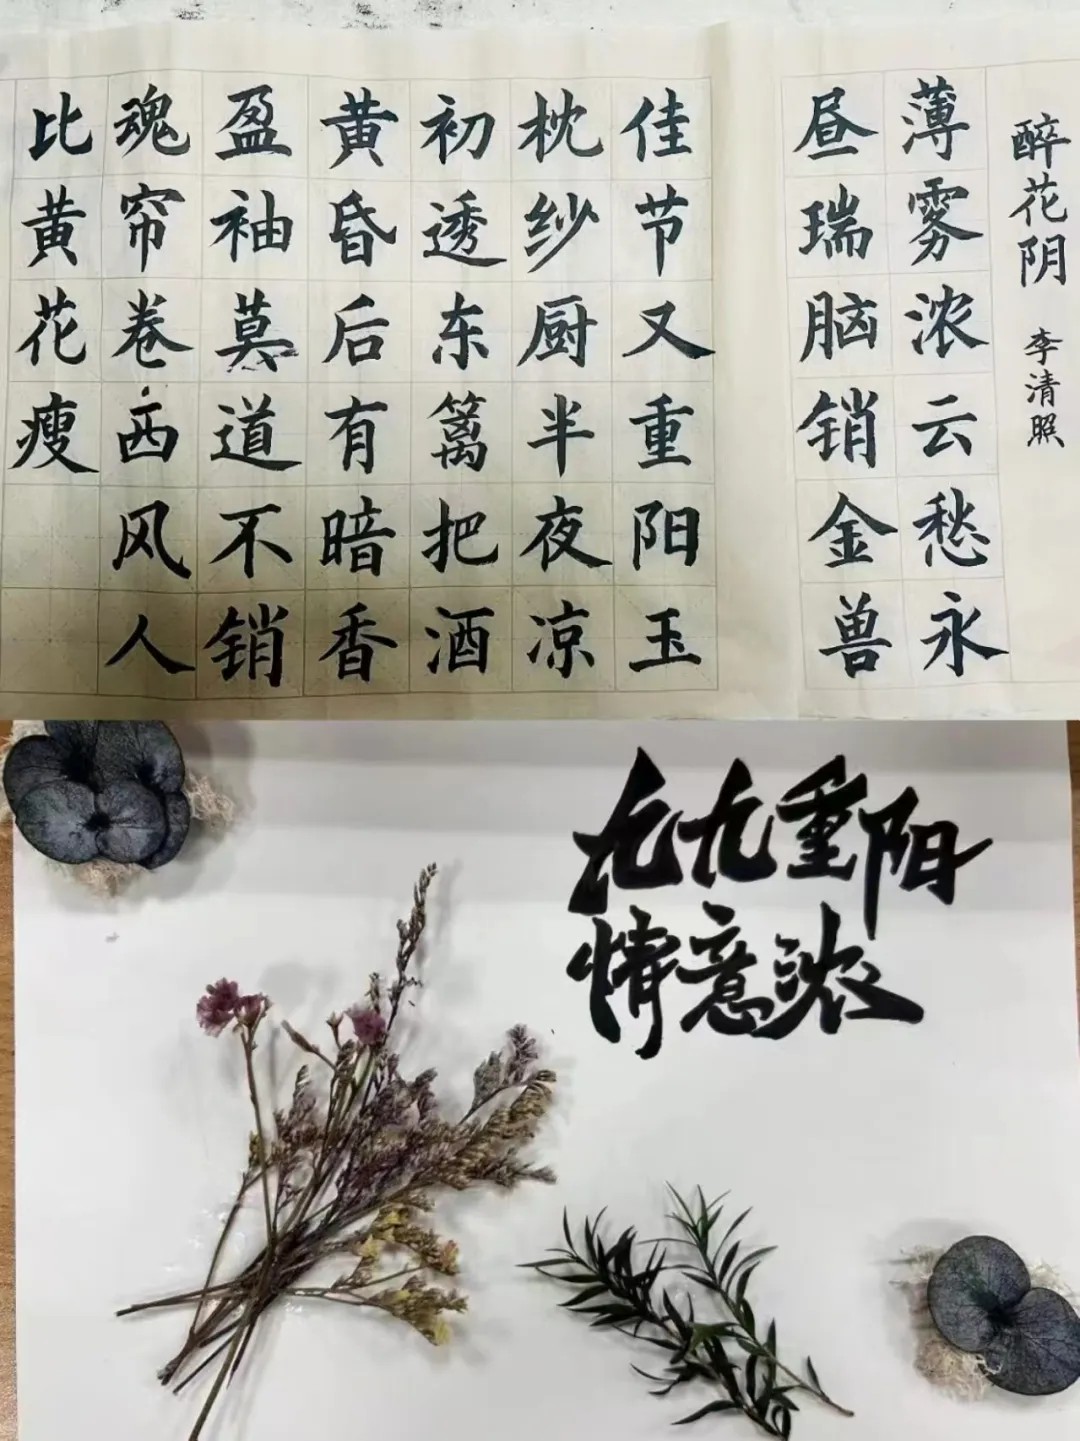 醉花阴 李清照
薄雾浓云愁永
昼瑞脑销金兽
佳节又重阳玉
枕纱厨半夜凉
初透东篱把酒
黄昏后有暗香
盈袖莫道不销
魂帘卷西风人
比黄花瘦
九九重阳
情意浓